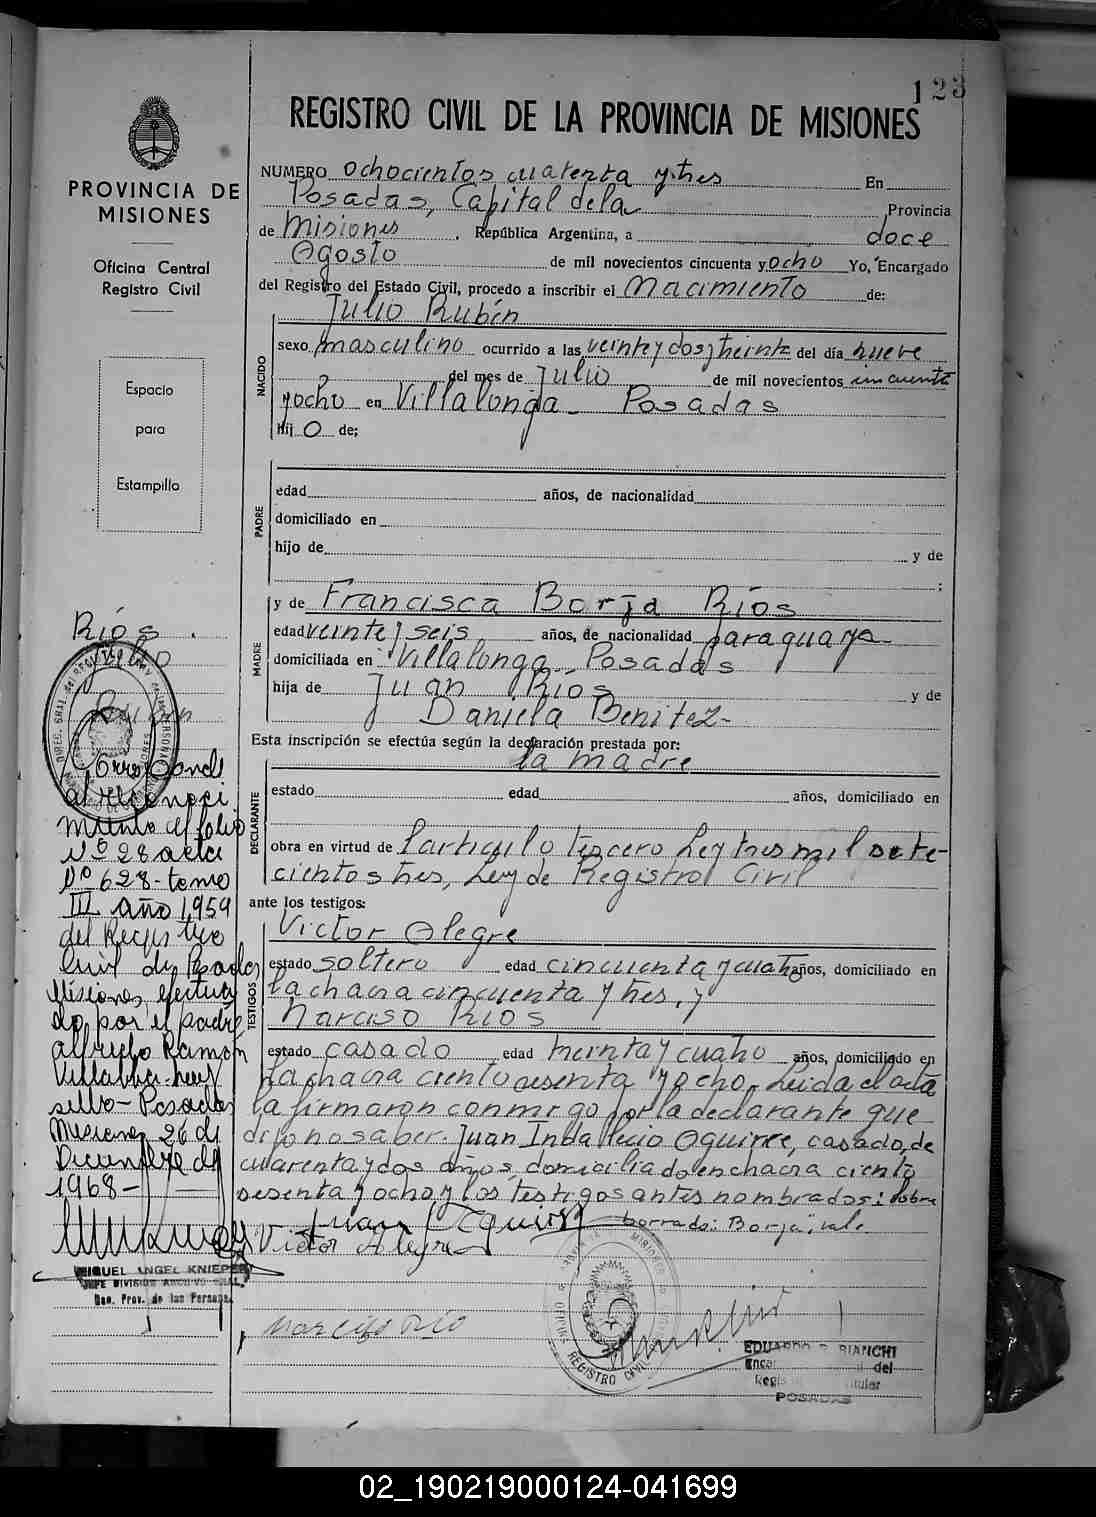 123
REGISTRO CIVIL DE LA PROVINCIA DE MISIONES
PROVINCIA DE
MISIONES
Oficina Central
Registro Civil
Espacio
para
Estampilla
NUMERO ochocientos cuarenta y tres En
Posadas, Capital de la Provincia
de Misiones, República Argentina, a doce
Agosto de mil novecientos cincuenta y ocho Yo, Encargado
del Registro del Estado Civil, procedo a inscribir el Nacimiento de:
Julio Rubén
NACIDO
sexo masculino ocurrido a las veinte y dos y treinta del día nueve
del mes de Julio de mil novecientos cincuenta
y ocho en Villalonga - Posadas
hij o de;
PADRE
edad años, de nacionalidad
domiciliado en
hijo de y de
;
MADRE
y de Francisca Borja Ríos
edad veinte y seis años, de nacionalidad paraguaya
domiciliada en Villalonga - Posadas
hija de Juan Ríos y de
Daniela Benitez-
Esta inscripción se efectúa según la declaración prestada por:
la madre
DECLARANTE
estado edad años, domiciliado en
obra en virtud de l'articulo tercero Ley tres mil sete-
cientos tres, Ley de Registro Civil
ante los testigos:
TESTIGOS
Victor Alegre
estado soltero edad cincuenta y cuatro años, domiciliado en
la chacra cincuenta y tres, y
Narciso Ríos
estado casado edad treinta y cuatro años, domiciliado en
la chacra ciento sesenta y ocho. Leida el acta
la firmaron conmigo por la declarante que
dijo no saber. Juan Indalecio Aguirre, casado, de
cuarenta y dos años, domiciliado en chacra ciento
sesenta y ocho y los testigos antes nombrados: sobre
borrado: Borja, vale.
Juan Aguirre
Victor Alegre
Narciso Río
Ríos
Julio
Ruben
Corresponde
al reconoci
miento al folio
Nº 28 acta
Nº 628- tomo
III año 1959
del Registro
Civil de Posadas
Misiones, efectua
do por el padre
Alfredo Ramón
sello- Posadas
Misiones 26 de
Diciembre de
1968-
MIGUEL ANGEL KNIEPER
JEFE DIVISION ARCHIVO GRAL.
REGISTRO CIVIL
EDUARDO R. BIANCHI
del
POSADAS
02_190219000124-041699